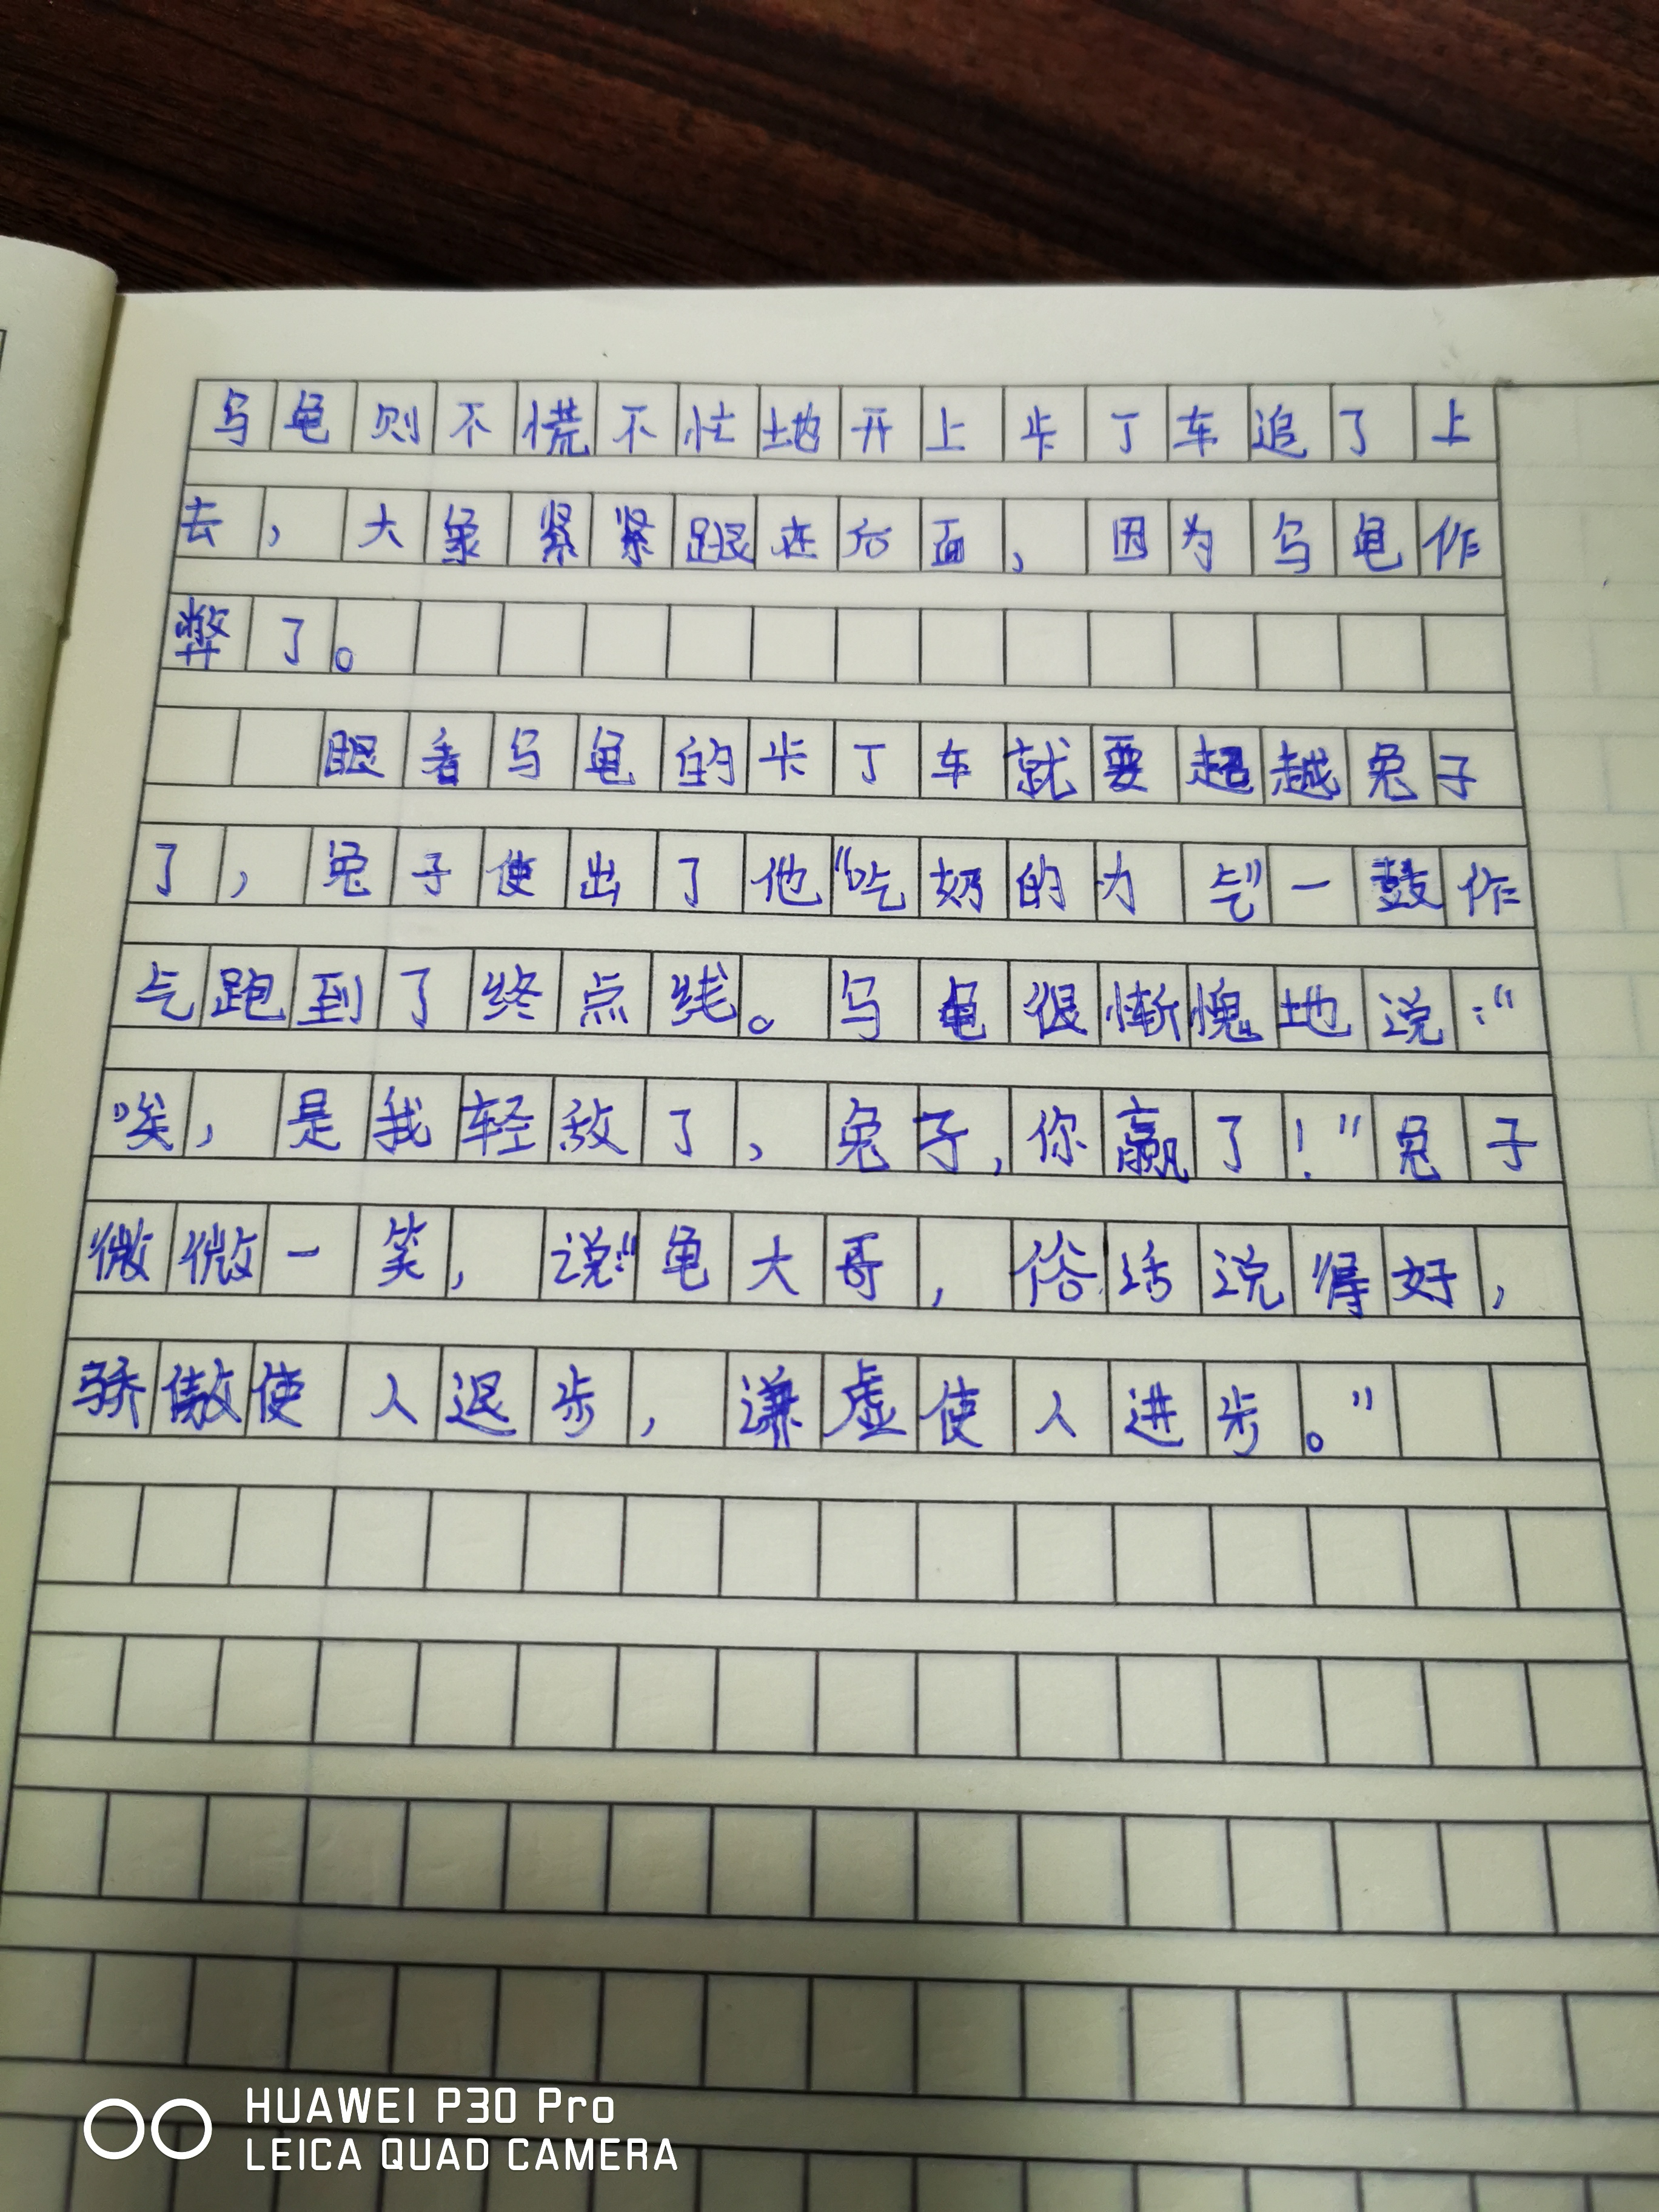 乌龟则不慌不忙地开上卡丁车追了上
去，大象紧紧跟在后面，因为乌龟作
弊了。
眼看乌龟的卡丁车就要超越兔子
了，兔子使出了他“吃奶的力气”一鼓作
气跑到了终点线。乌龟很惭愧地说：“
唉，是我轻敌了，兔子，你赢了！”兔子
微微一笑，说：“龟大哥，俗话说得好，
骄傲使人退步，谦虚使人进步。”
HUAWEI P30 Pro
LEICA QUAD CAMERA